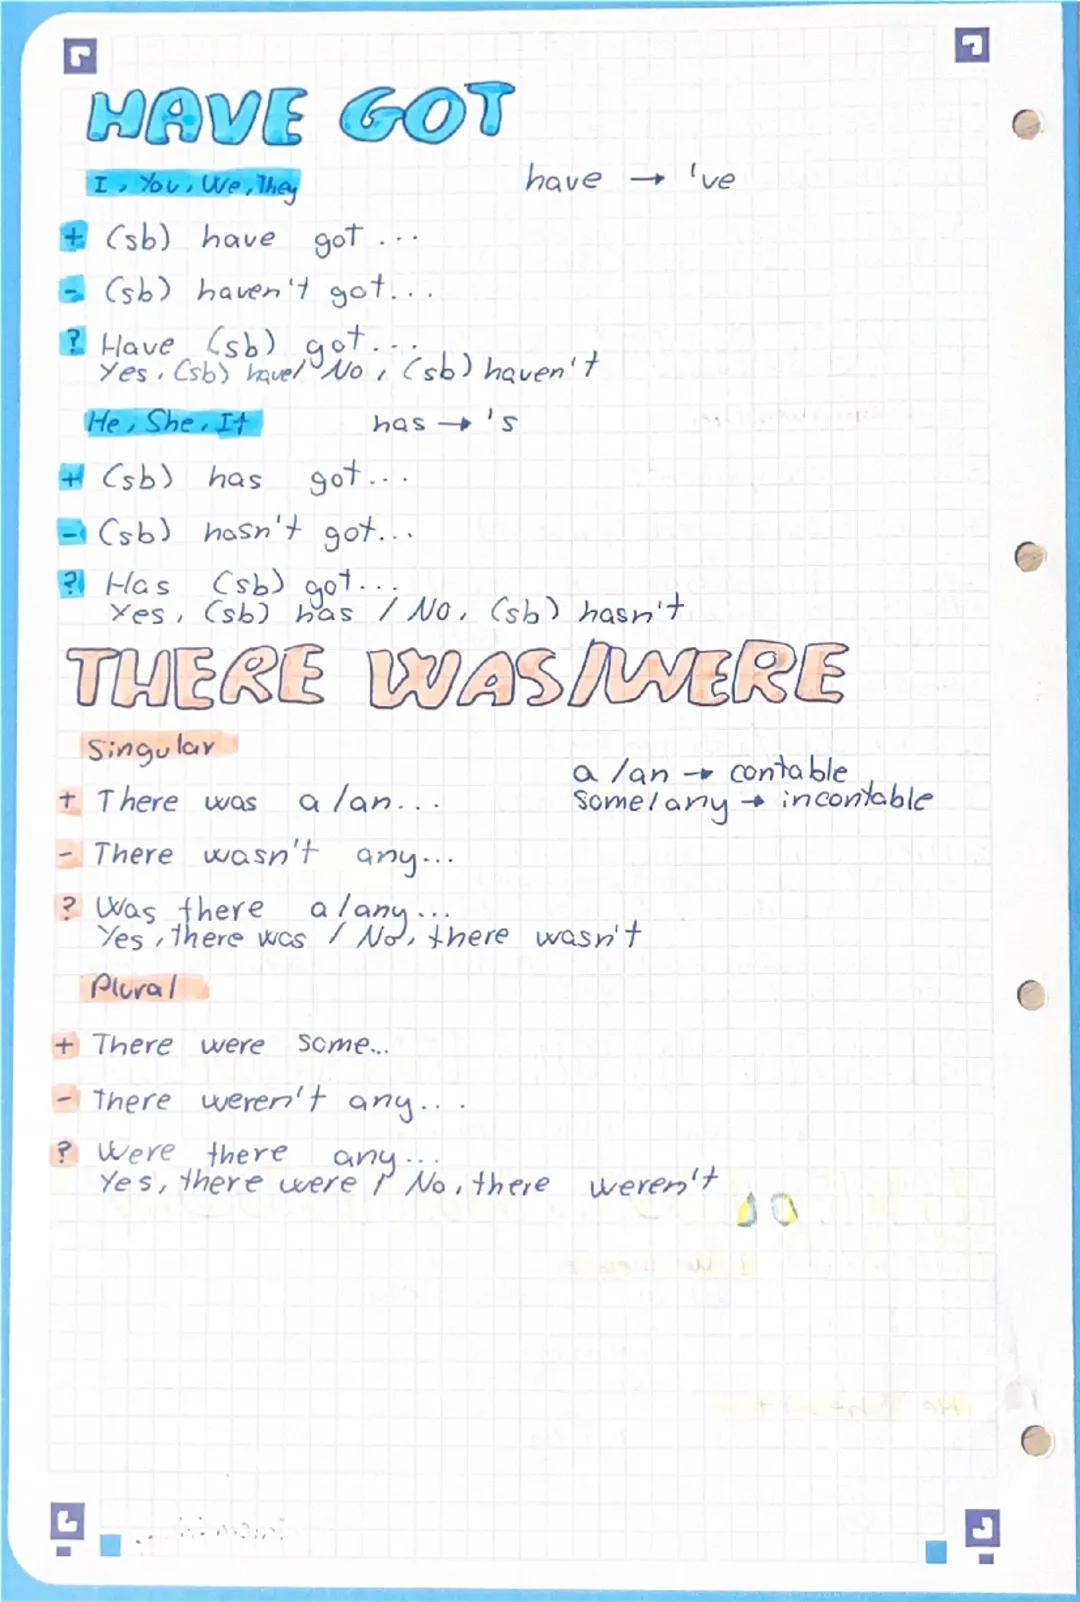 HAVE GOT
I, You, We, They
have → 've
+ (sb) have got ...
- (sb) haven't got...
? Have (sb) got...
Yes, (sb) have/ No, (sb) haven't
He, She, It
has → 's
+ (sb) has got...
- (sb) hasn't got...
? Has (sb) got...
Yes, (sb) has / No, (sb) hasn't
THERE WAS/WERE
Singular
a /an → contable
some/any → incontable
+ There was a/an...
- There wasn't any...
? Was there a/any...
Yes, there was / No, there wasn't
Plural
+ There were some...
- There weren't any...
? Were there any...
Yes, there were / No, there weren't